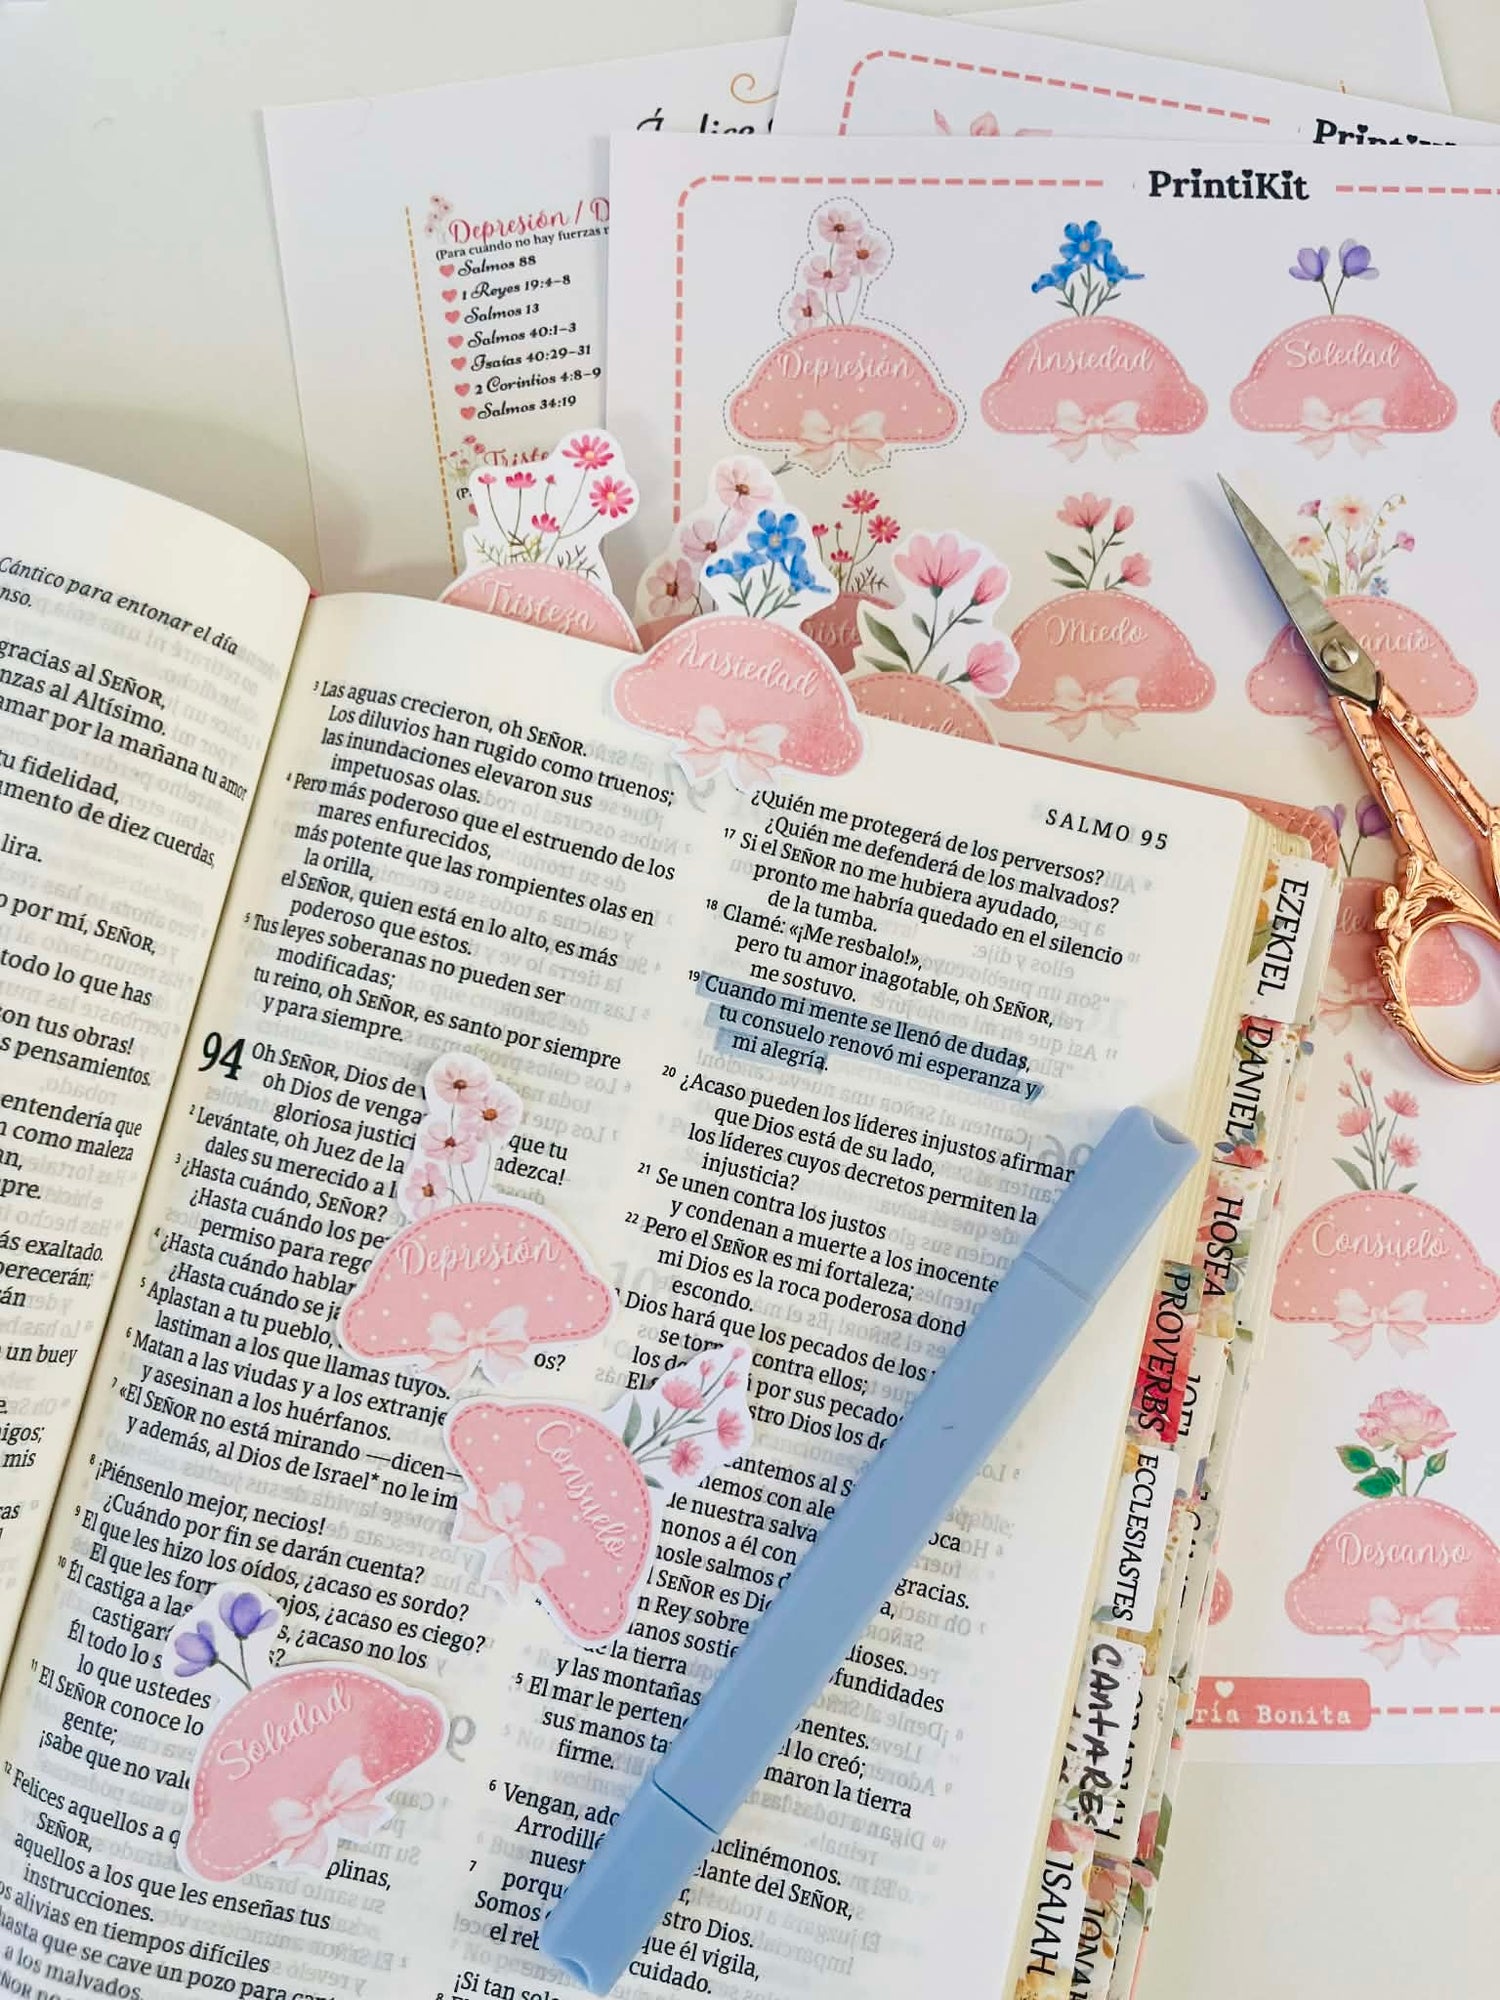 PrintiKit
Depresión / D
(Para cuando no hay fuerzas
Salmos 88
1 Reyes 19:4-8
Salmos 13
Salmos 40:1-3
Isaías 40:29-31
2 Corintios 4:8-9
Salmos 34:19
PrintiKit
Depresión
Ansiedad
Soledad
Miedo
Consuelo
Descanso
ría Bonita
Tristeza
Ansiedad
Cántico para entonar el día
gracias al SEÑOR,
nzas al Altísimo.
amar por la mañana tu amor
tu fidelidad,
mento de diez cuerdas,
lira.
o por mí, SEÑOR,
todo lo que has
con tus obras!
s pensamientos.
entendería que
n como maleza
pre.
ás exaltado.
perecerán;
un buey
mis
3 Las aguas crecieron, oh SEÑOR.
Los diluvios han rugido como truenos;
las inundaciones elevaron sus
impetuosas olas.
4 Pero más poderoso que el estruendo de los
mares enfurecidos,
más potente que las rompientes olas en
la orilla,
el SEÑOR, quien está en lo alto, es más
poderoso que estos.
5 Tus leyes soberanas no pueden ser
modificadas;
tu reino, oh SEÑOR, es santo por siempre
y para siempre.
94 Oh SEÑOR, Dios de
oh Dios de venga que tu
gloriosa justici ndezca!
2 Levántate, oh Juez de la
dales su merecido a l
3 ¿Hasta cuándo, SEÑOR?
¿Hasta cuándo los pe
permiso para rego
4 ¿Hasta cuándo hablar
¿Hasta cuándo se ja
5 Aplastan a tu pueblo,
lastiman a los que llamas tuyos. os?
6 Matan a las viudas y a los extranje
y asesinan a los huérfanos.
7 «El SEÑOR no está mirando —dicen—
y además, al Dios de Israel* no le im
8 ¡Piénsenlo mejor, necios!
¿Cuándo por fin se darán cuenta?
9 El que les hizo los oídos, ¿acaso es sordo?
El que les for ojos, ¿acaso es ciego?
10 Él castiga a las s, ¿acaso no los
castigará s?
Él todo lo s
lo que ustedes
11 El SEÑOR conoce lo
gente;
¡sabe que no val
12 Felices aquellos a q plinas,
SEÑOR,
aquellos a los que les enseñas tus
instrucciones.
alivias en tiempos difíciles
hasta que se cave un pozo para
a los malvados.
Depresión
Consuelo
Soledad
SALMO 95
¿Quién me protegerá de los perversos?
¿Quién me defenderá de los malvados?
17 Si el SEÑOR no me hubiera ayudado,
pronto me habría quedado en el silencio
de la tumba.
18 Clamé: «¡Me resbalo!»,
pero tu amor inagotable, oh SEÑOR,
me sostuvo.
19 Cuando mi mente se llenó de dudas,
tu consuelo renovó mi esperanza y
mi alegría.
20 ¿Acaso pueden los líderes injustos afirmar
que Dios está de su lado,
los líderes cuyos decretos permiten la
injusticia?
21 Se unen contra los justos
y condenan a muerte a los inocente
22 Pero el SEÑOR es mi fortaleza;
mi Dios es la roca poderosa dond
escondo.
Dios hará que los pecados de los
se tor contra ellos;
los de por sus pecado
stro Dios los de
antemos al S
emos con ale
de nuestra salva oca
monos a él con gracias.
nosle salmos d
l SEÑOR es Dio
n Rey sobre dioses.
anos sostie fundidades
la tierra
y las montañas nentes.
5 El mar le perten l lo creó;
sus manos ta maron la tierra
firme.
6 Vengan, ado nclinémonos.
Arrodillé elante del SEÑOR,
nuest r,
7 porqu stro Dios.
Somos que él vigila,
el reb cuidado.
¡Si tan sol
EZEKIEL
DANIEL
HOSEA
PROVERBS
JOEL
ECCLESIASTES
CANTARES
ISAIAH
JONAH